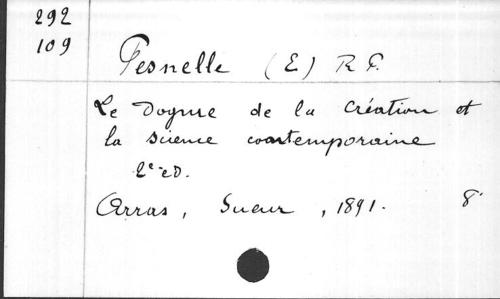 292
109
Pesnelle (E) R. P.
Le Dogme de la Création et
la science contemporaine
2e ed.
Arras, Sueur, 1891. 8°